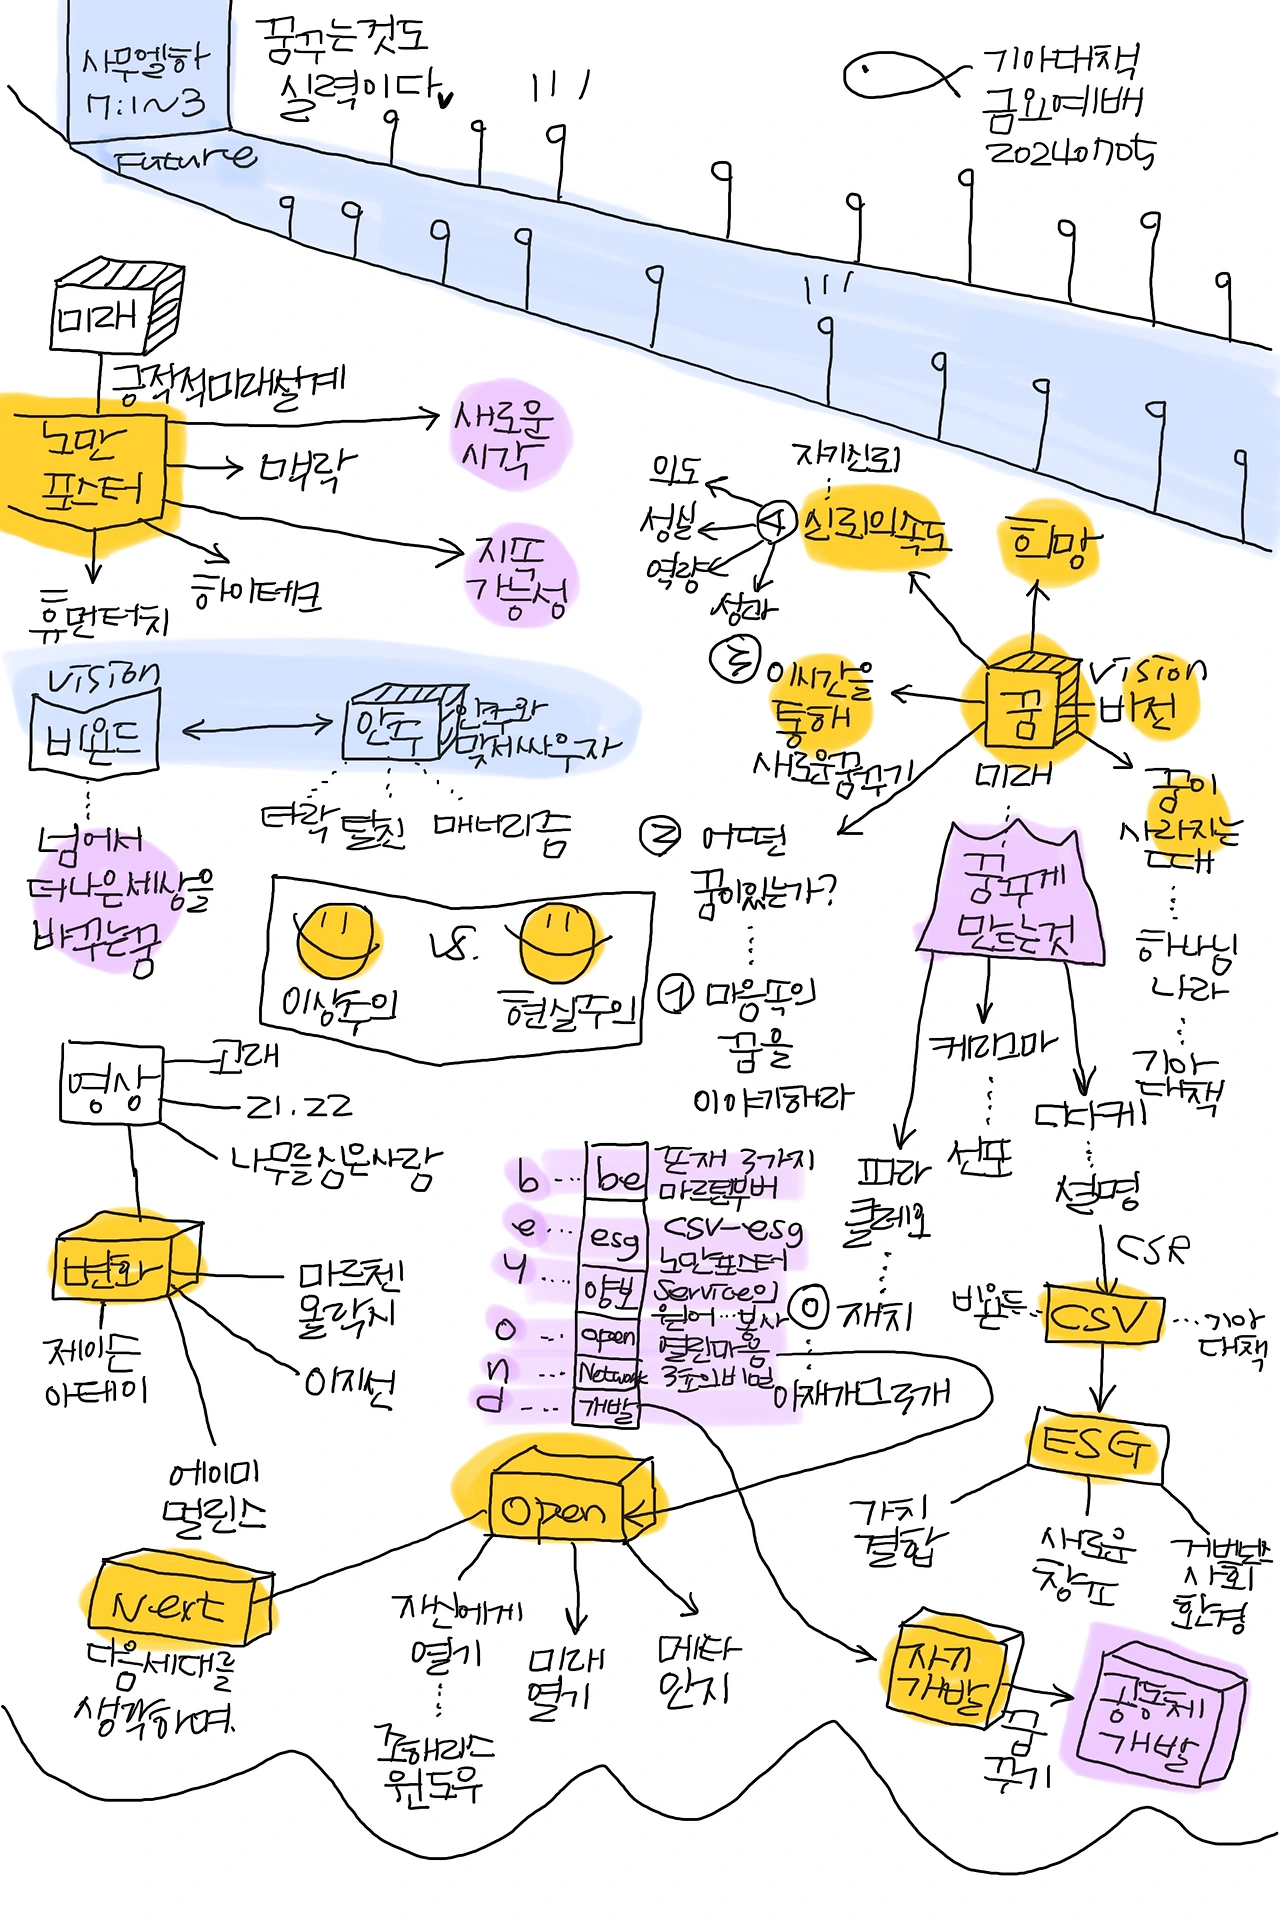 사무엘하
7:1~3
꿈꾸는것도
실력이다
기아대책
금요예배
20240705
Future
미래
긍정적미래설계
노만
포스터
새로운
시각
맥락
지또
가능성
하이테크
휴먼터치
자기신뢰
의도
성실
역량
성과
④
신뢰의속도
희망
③
이시간을
통해
새로운꿈꾸기
꿈
vision
비전
미래
꿈이
사라지는
때
하나님
나라
기아
대책
②
어떤
꿈이있는가?
①
마음속의
꿈을
이야기해라
vision
비욘드
안주
안주와
맞서싸우자
타락
탈진
매너리즘
넘어서
더나은세상을
바꾸는꿈
VS.
이상주의
현실주의
꿈꾸게
만드는것
케리그마
선포
디다케
설명
파라
클레오
⓪
재치
아재개그 3개
영상
고래
21.22
나무를심은사람
변화
마르첸
올락시
제이든
아데이
이지선
에이미
멀린스
b
be
존재 3가지
마르틴부버
e
esg
CSV-esg
노만포스터
y
양보
Service의
원어…봉사
o
open
열린마음
n
Network
3초의비밀
d
개발
CSR
비욘드
CSV
기아
대책
ESG
가치
결합
새로운
창조
거버넌스
사회
환경
Open
Next
다음세대를
생각하며
자신에게
열기
조해리스
윈도우
미래
열기
메타
인지
자기
개발
꿈
꾸기
공동체
개발